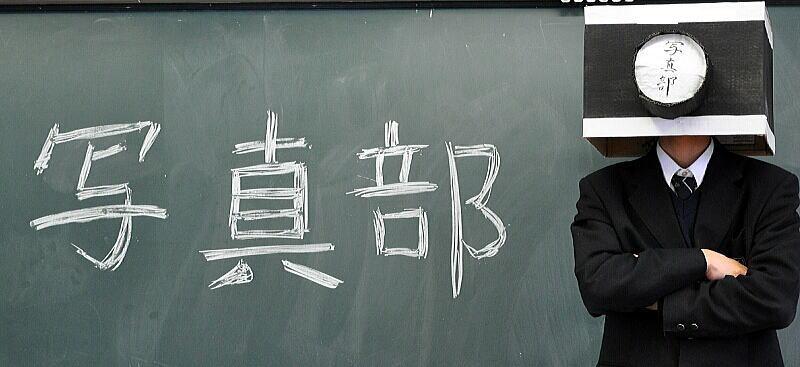 写真部
写真部